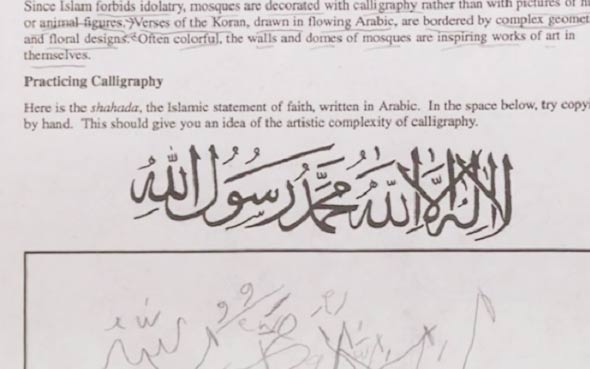 Since Islam forbids idolatry, mosques are decorated with calligraphy rather than with pictures of
or animal figures. Verses of the Koran, drawn in flowing Arabic, are bordered by complex
and floral designs. Often colorful, the walls and domes of mosques are inspiring works of art in
themselves.
Practicing Calligraphy
Here is the shahada, the Islamic statement of faith, written in Arabic. In the space below, try
by hand. This should give you an idea of the artistic complexity of calligraphy.
لا إله إلا الله محمد رسول الله